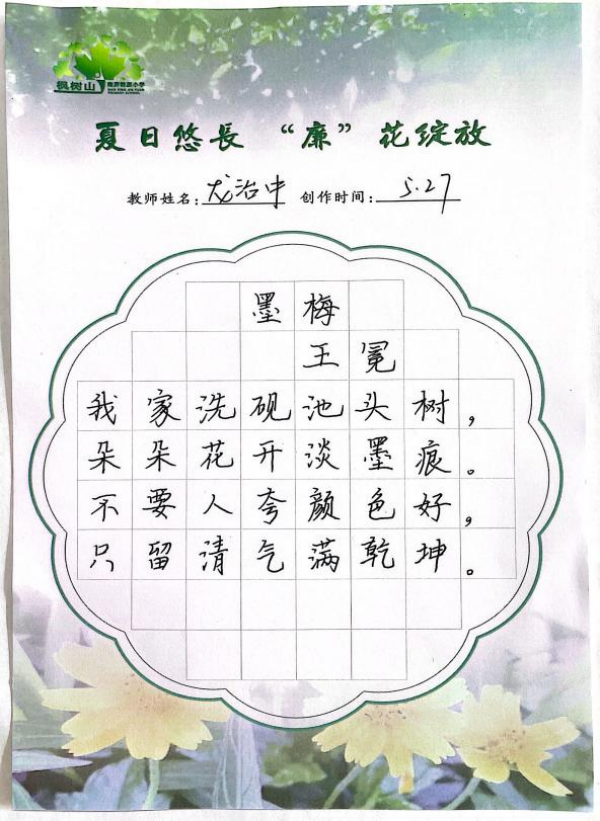 枫树山
夏日悠長 “廉”花绽放
教师姓名: 龙治中 创作时间: 5.27
墨梅
王冕
我家洗砚池头树，
朵朵花开淡墨痕。
不要人夸颜色好，
只留清气满乾坤。